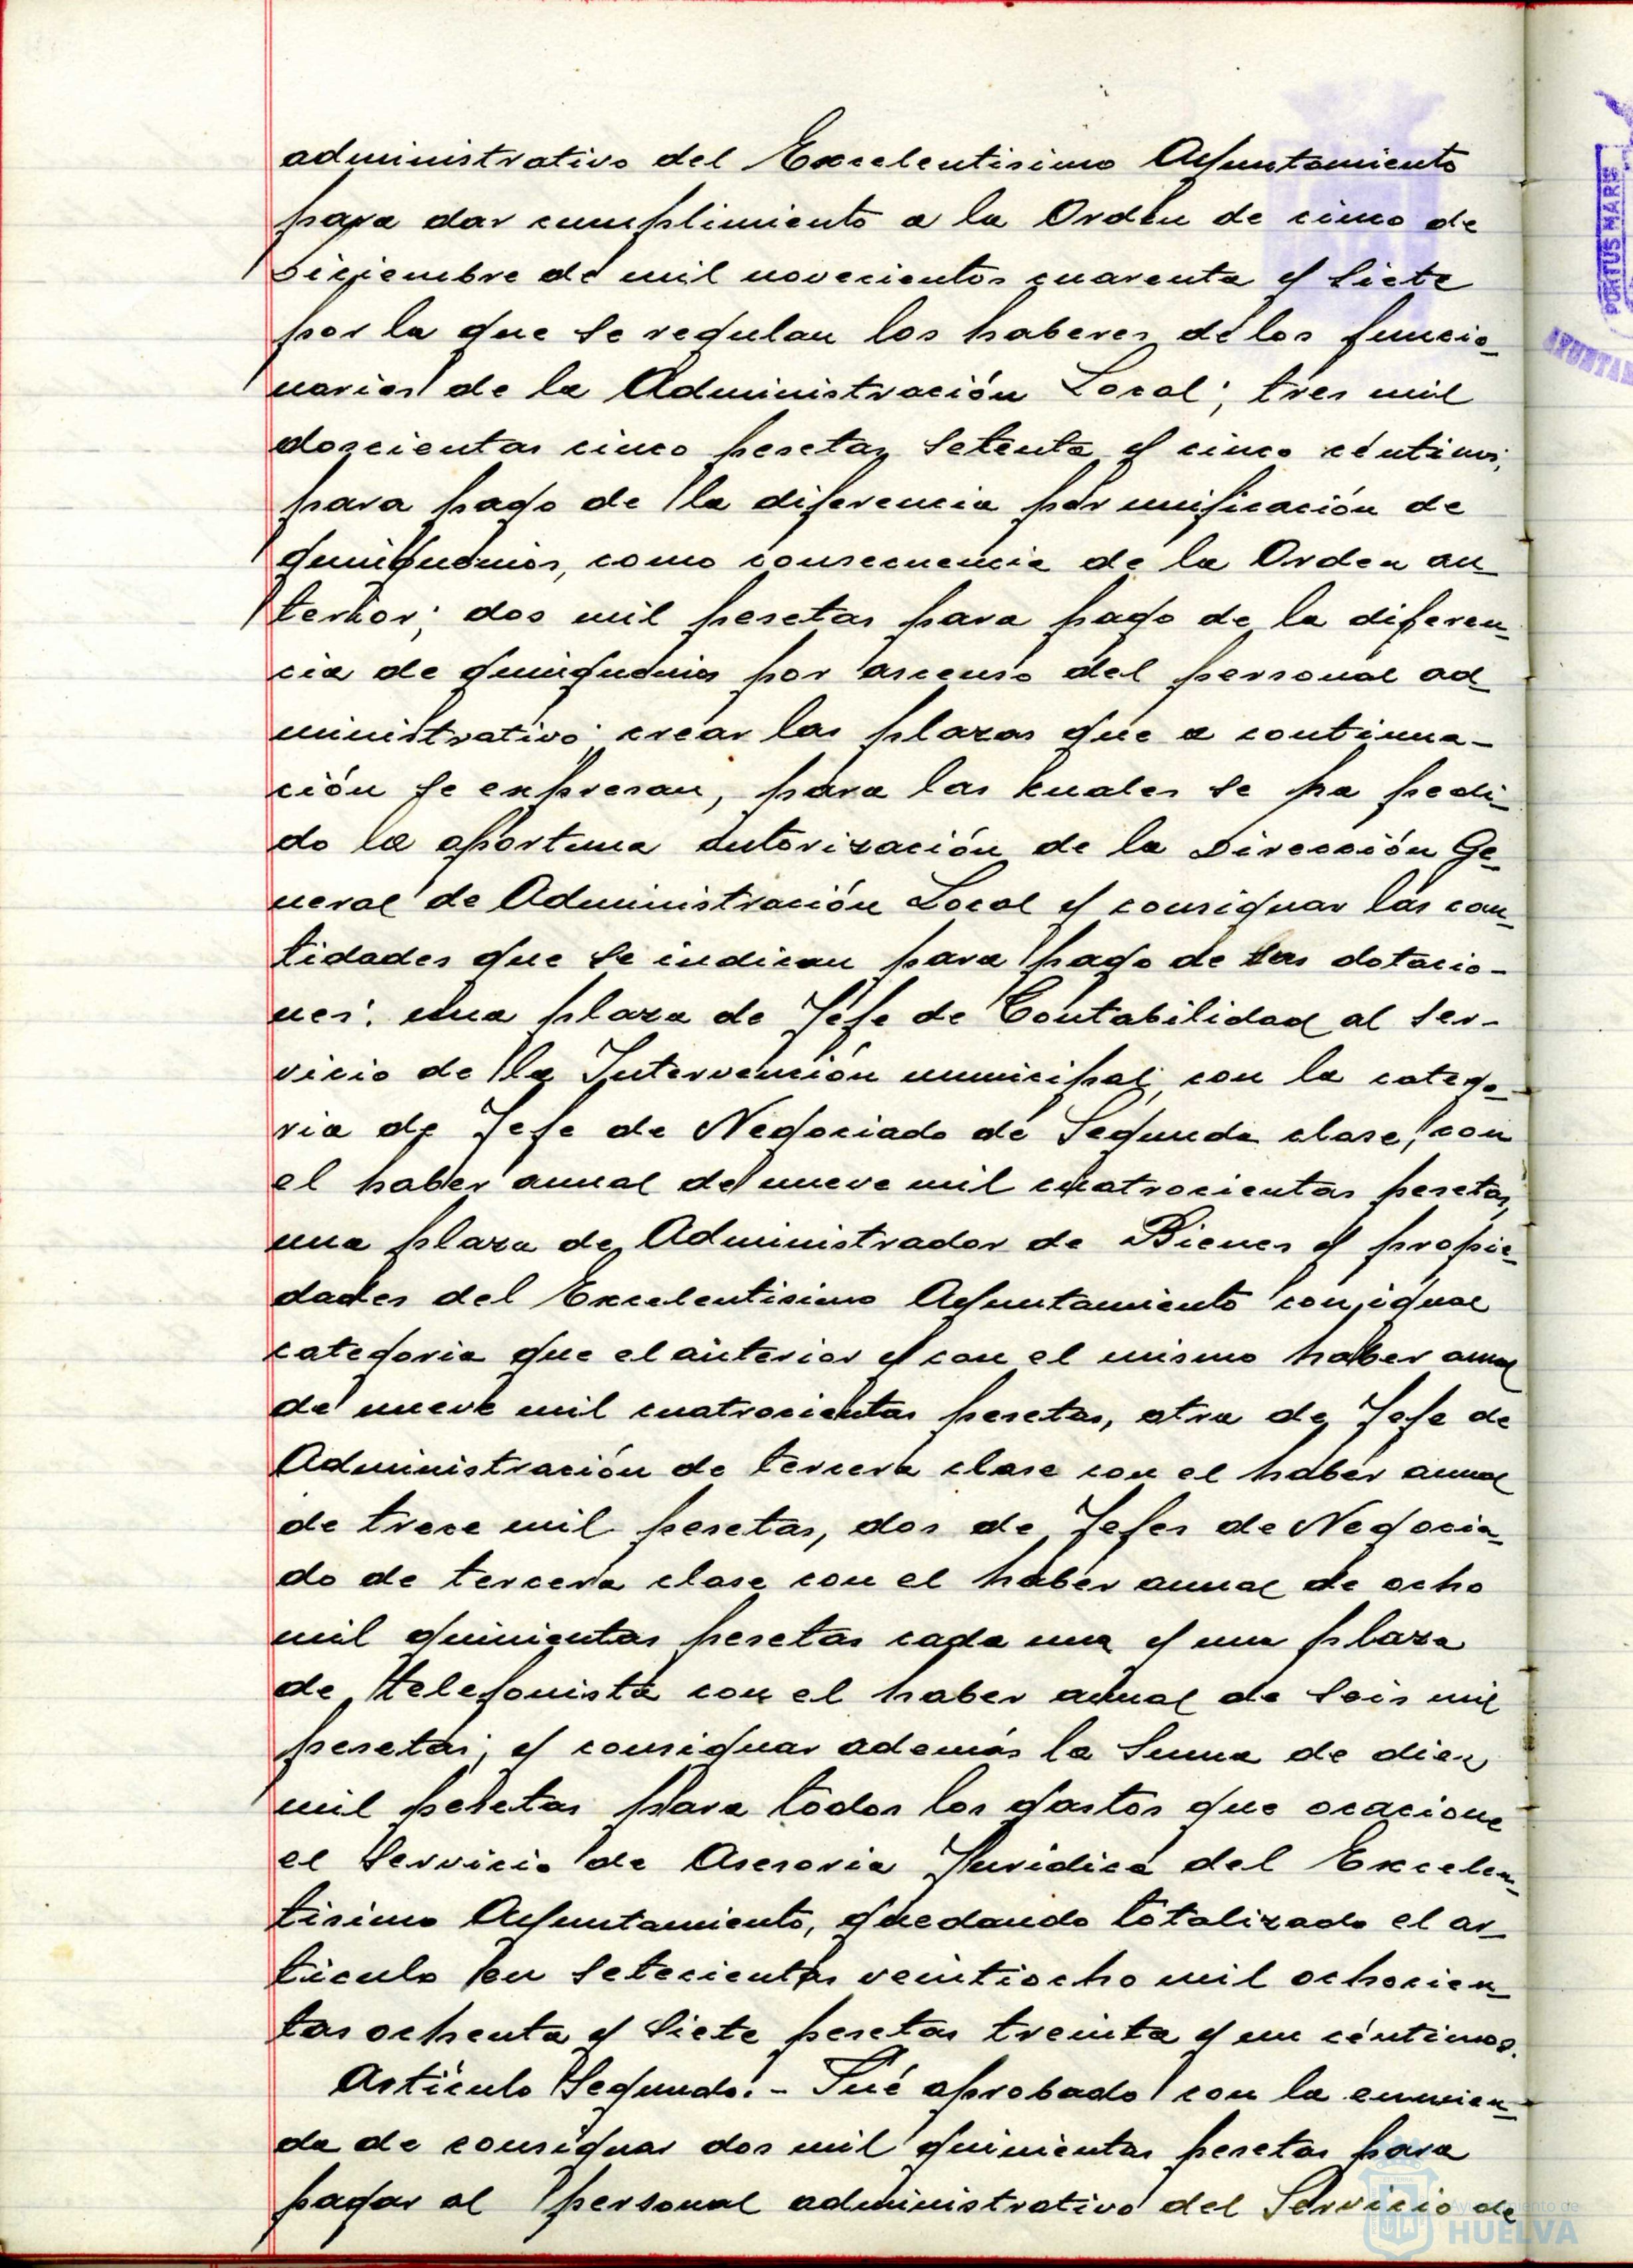 administrativo del Excelentisimo Ayuntamiento
para dar cumplimiento a la Orden de cinco de
Diciembre de mil novecientos cuarenta y siete
por la que se regulan los haberes de los funcio_
narios de la Administración Local; tres mil
doscientas cinco pesetas setenta y cinco céntimos,
para pago de la diferencia por unificación de
quinquenios, como consecuencia de la Orden an_
terior; dos mil pesetas para pago de la diferen_
cia de quinquenios por ascenso del personal ad_
ministrativo; crear las plazas que a continua-
ción se expresan, para las cuales se ha pedi_
do la oportuna autorización de la Dirección Ge_
neral de Administración Local y consignar las can_
tidades que se indican para pago de sus dotacio-
nes: una plaza de Jefe de Contabilidad al ser-
vicio de la Intervención municipal, con la catego_
ria de Jefe de Negociado de Segunda clase, con
el haber anual de nueve mil cuatrocientas pesetas,
una plaza de Administrador de Bienes y propie_
dades del Excelentisimo Ayuntamiento con igual
categoria que el anterior y con el mismo haber anual
de nueve mil cuatrocientas pesetas, otra de Jefe de
Administración de tercera clase con el haber anual
de trece mil pesetas, dos de Jefes de Negocia_
do de tercera clase con el haber anual de ocho
mil quinientas pesetas cada una y una plaza
de telefonista con el haber anual de seis mil
pesetas; y consignar además la suma de diez
mil pesetas para todos los gastos que ocacione
el servicio de Asesoria Juridica del Excelen_
tisimo Ayuntamiento, quedando totalizado el ar_
ticulo en setecientas veintiocho mil ochocien_
tas ochenta y siete pesetas treinta y un céntimos.
Artículo Segundo:- Fué aprobado con la enmien_
da de consignar dos mil quinientas pesetas para
pagar al personal administrativo del Servicio de
PORTUS MARIS
Ayuntamiento de
HUELVA